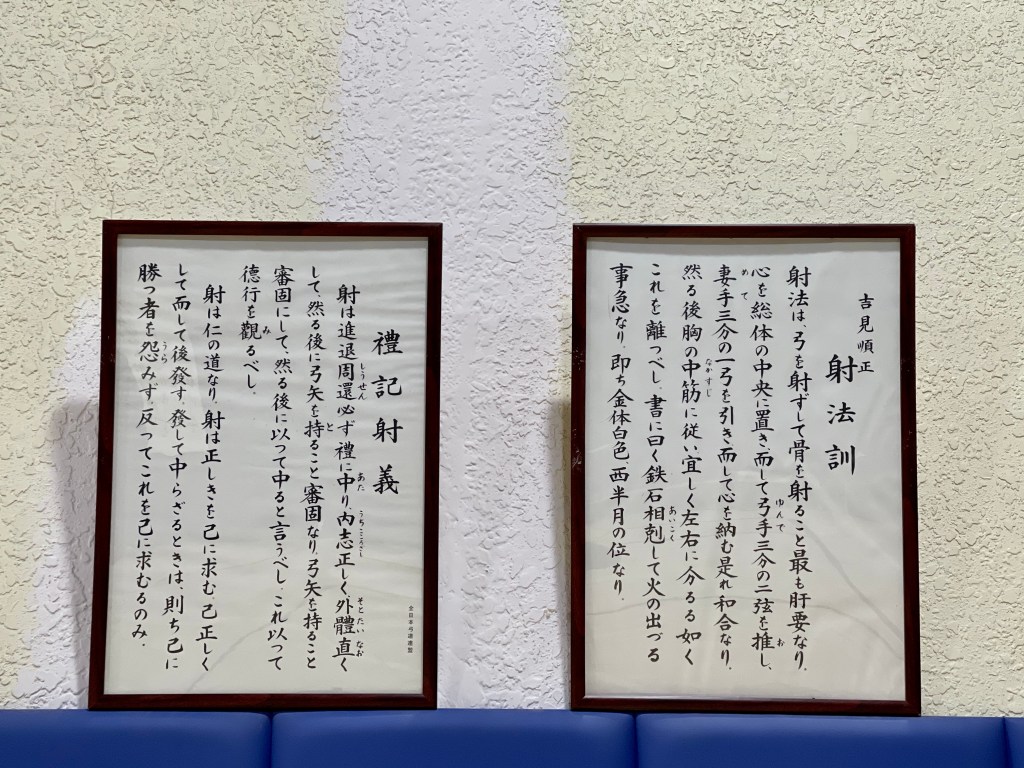 吉見順正
射法訓
射法は弓を射ずして骨を射ること最も肝要なり。
心を総体の中央に置き而して弓手三分の二弦を推し、
妻手三分の一弓を引き而して心を納む是れ和合なり。
然る後胸の中筋に従い宜しく左右に分るる如く
これを離つべし。書に曰く鉄石相剋して火の出づる
事急なり。即ち金体白色西半月の位なり。
ゆんで
お
めて
なかすじ
あいこく
全日本弓道連盟
禮記射義
射は進退周還必ず禮に中り、内志正しく外體直く
して、然る後に弓矢を持ること審固なり。弓矢を持ること
審固にして、然る後に以って中ると言うべし。これ以って
德行を觀るべし。
射は仁の道なり。射は正しきを己に求む。己正しく
して而して後發す。發して中らざるときは、則ち己に
勝つ者を怨みず。反ってこれを己に求むるのみ。
しうせん
あた
うちこころざし
そとたいなお
と
み
うら